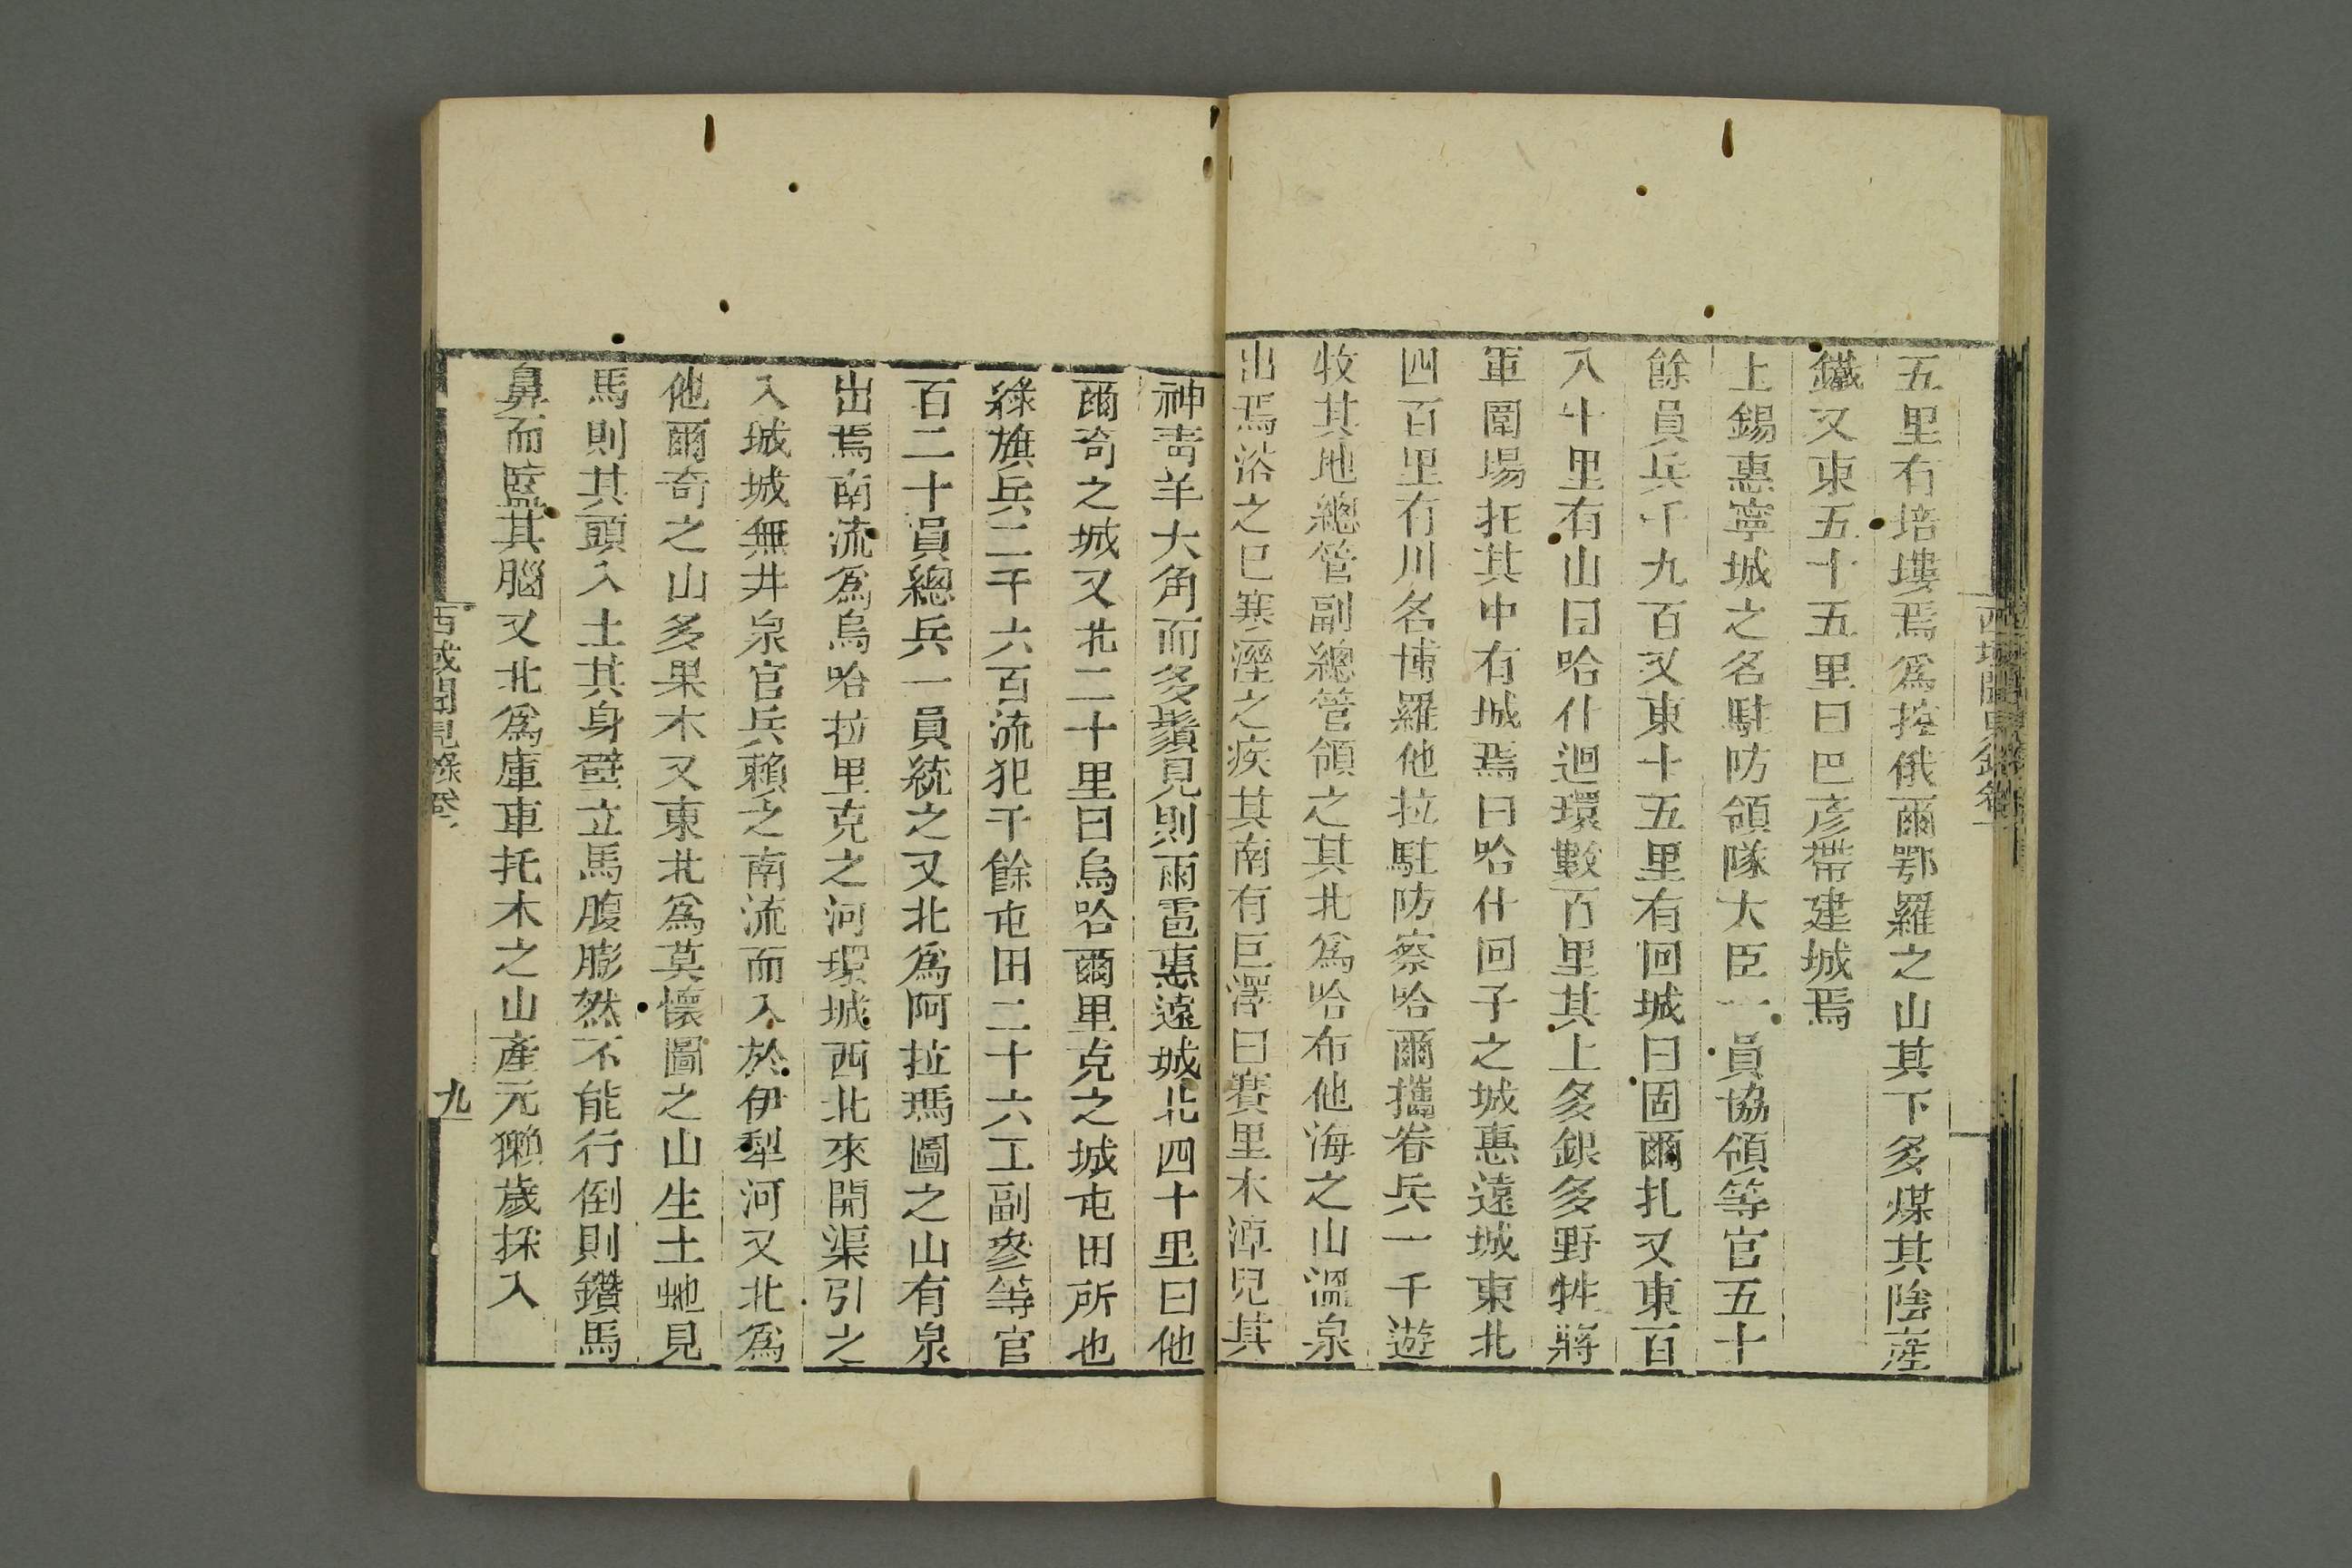 五里有培塿焉爲控俄爾鄂羅之山其下多煤其陰產
鐵又東五十五里曰巴彥帶建城焉
上錫惠寧城之名駐防領隊大臣一員協領等官五十
餘員兵千九百又東十五里有回城曰固爾扎又東百
八十里有山曰哈什迴環數百里其上多銀多野牲將
軍圍場在其中有城焉曰哈什回子之城惠遠城東北
四百里有川名博羅他拉駐防察哈爾攜眷兵一千遊
牧其地總管副總管領之其北爲哈布他海之山溫泉
出焉浴之已寒溼之疾其南有巨澤曰賽里木淖兒其
神靑羊大角而多鬚見則雨雹惠遠城北四十里曰他
爾奇之城又北二十里曰烏哈爾里克之城屯田所也
綠旗兵二千六百流犯千餘屯田二十六工副叅等官
百二十員總兵一員統之又北爲阿拉瑪圖之山有泉
出焉南流爲烏哈拉里克之河環城西北來開渠引之
入城城無井泉官兵賴之南流而入於伊犁河又北爲
他爾奇之山多果木又東北爲莫懷圖之山生土虵見
馬則其頭入土其身壁立馬腹膨然不能行倒則鑽馬
鼻而盬其腦又北爲庫車托木之山產元獺歲採入
西域聞見錄卷一
九